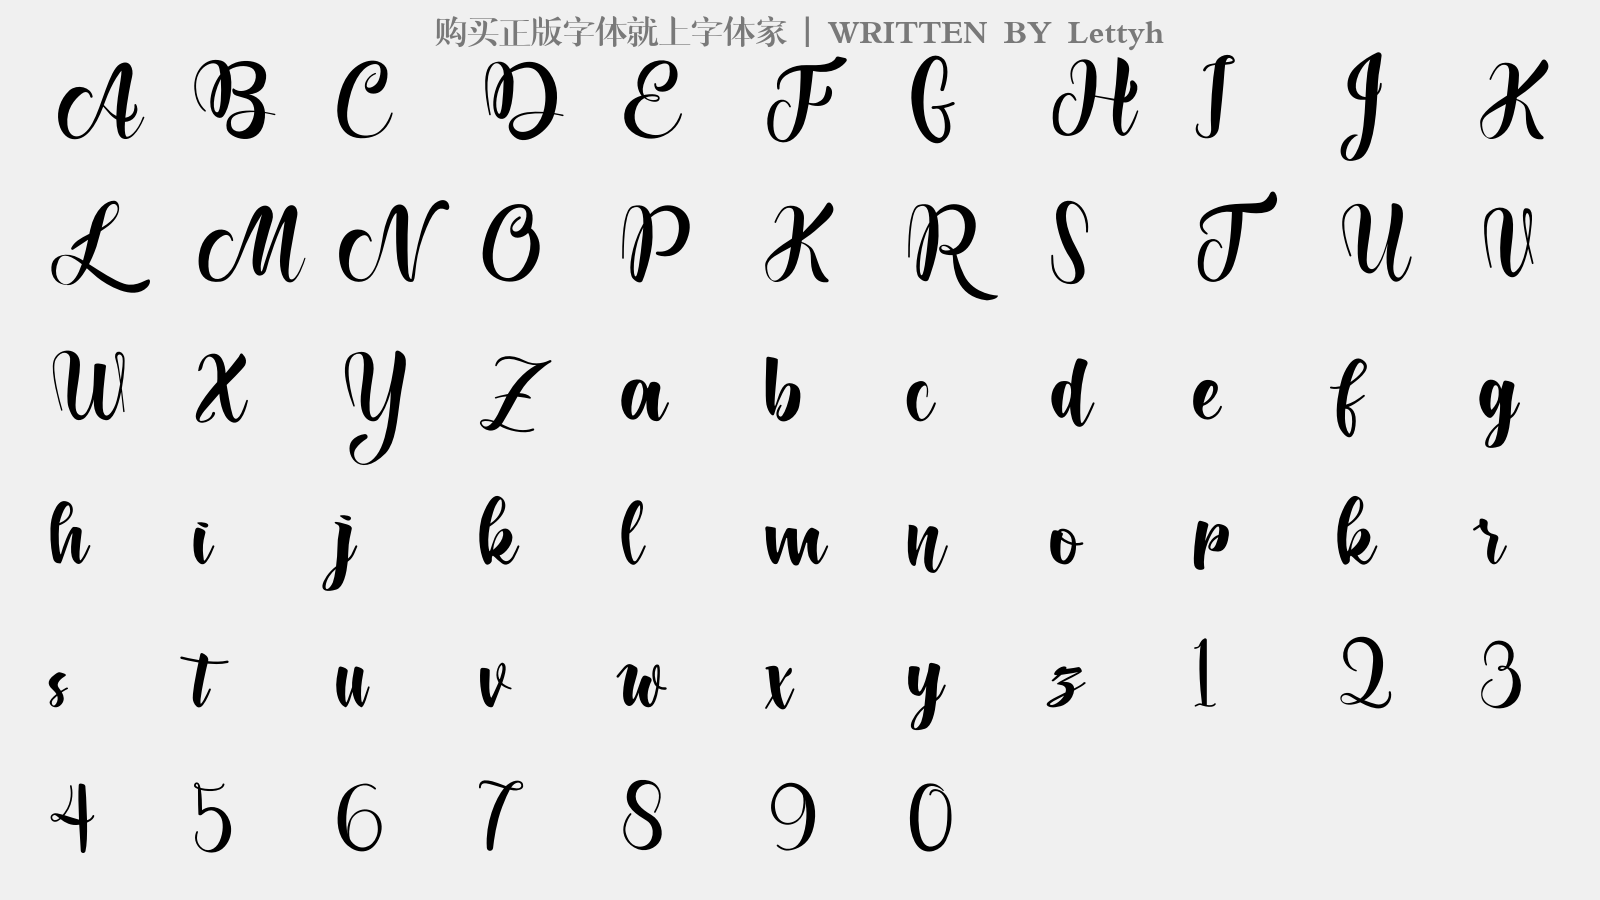 购买正版字体就上字体家 | WRITTEN BY Lettyh
A B C D E F G H I J K
L M N O P K R S T U V
W X Y Z a b c d e f g
h i j k l m n o p k r
s t u v w x y z 1 2 3
4 5 6 7 8 9 0